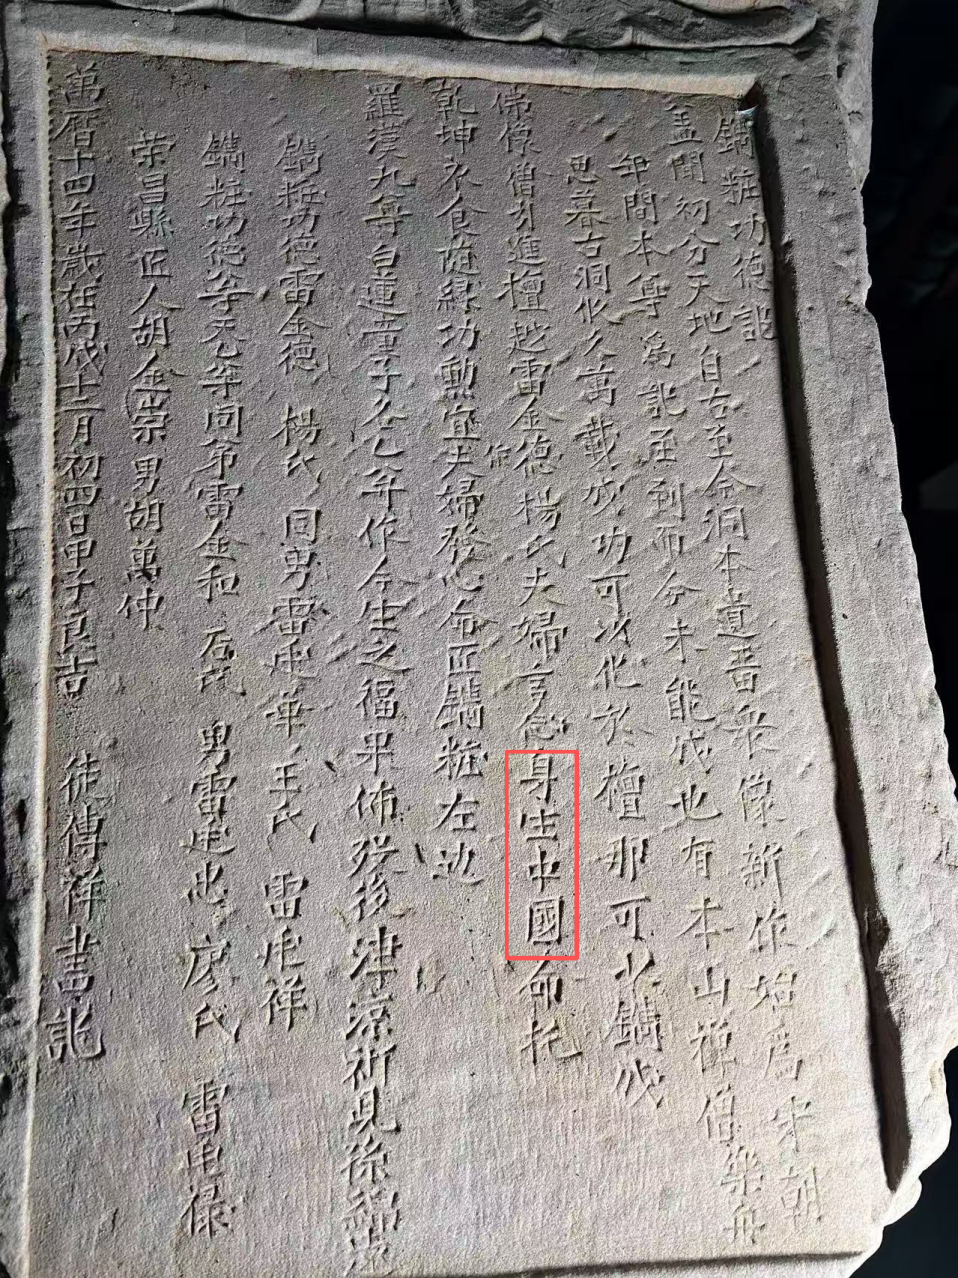 鐫粧功德記
盖聞初分天地自古至今洞本遺畱衆像新作始爲宋朝
年間本尊爲記至到而今未能伐也有本山禪僧樂舟
思暮古洞化久萬載成功可以化於檀那可以鐫伐
佛像僧身進檀越雷金德楊氏夫婦言念身生中國命托
乾坤衣食随緣功勳宜夫婦發心命匠鐫粧左边
羅漢九尊白蓮童子名乙年作今生之福果佈後津涼祈見
鐫粧功德雷金德 楊氏 同男雷迅華 王氏 雷迅祥
鐫粧功德等天乞等同弟雷金和 石氏 男雷迅忠 廖氏 雷迅祿
荣昌縣匠人胡金崇男胡萬仲
萬曆十四年歲在丙戌十二月初四日甲子良吉 徒傳洋書記